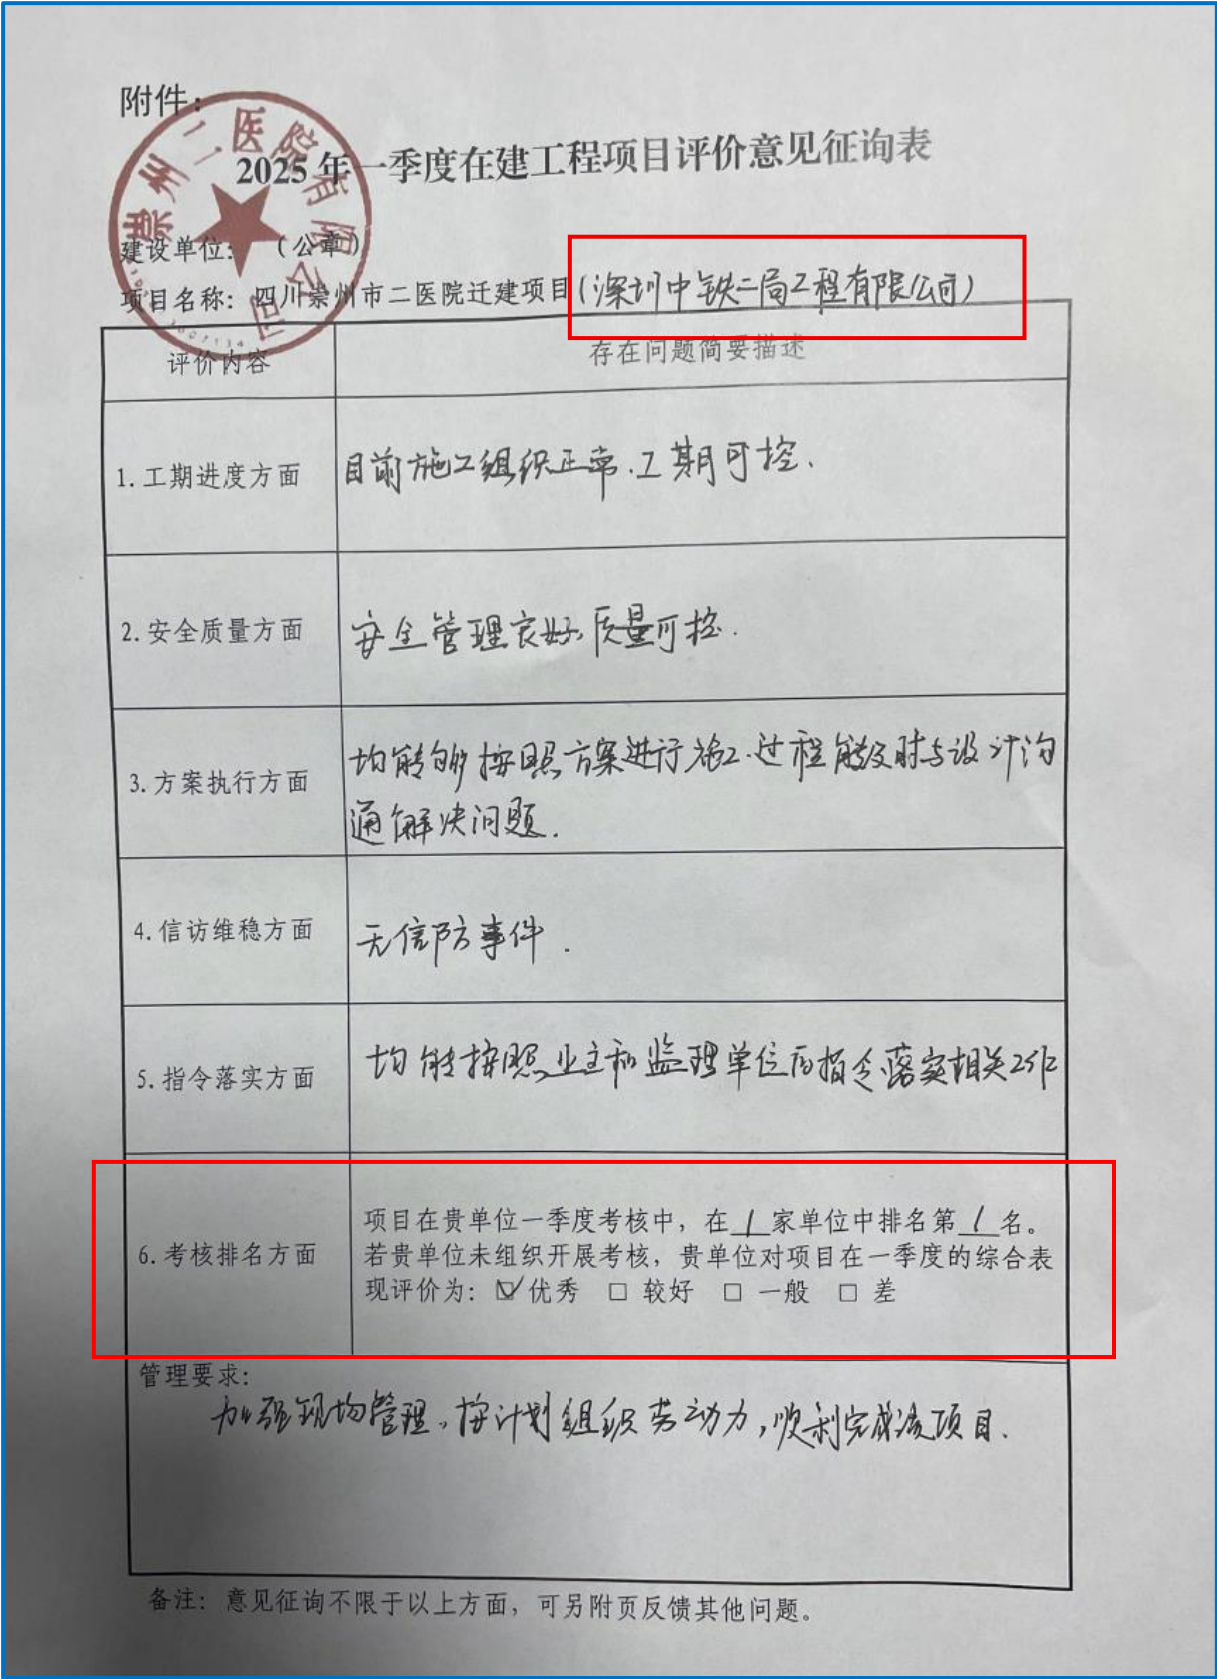 附件:
2025年一季度在建工程项目评价意见征询表
崇州二医院有限公司
建设单位: (公章)
项目名称: 四川崇州市二医院迁建项目(深圳中铁二局工程有限公司)
评价内容 存在问题简要描述
1.工期进度方面 目前施工组织正常.工期可控.
2.安全质量方面 安全管理良好,质量可控.
3.方案执行方面 均能够按照方案进行施工.过程能及时与设计沟
通解决问题.
4.信访维稳方面 无信防事件.
5.指令落实方面 均能按照业主和监理单位的指令落实相关工作
项目在贵单位一季度考核中，在1家单位中排名第1名。
6.考核排名方面 若贵单位未组织开展考核，贵单位对项目在一季度的综合表
现评价为: ☑优秀 □较好 □一般 □差
管理要求:
加强现场管理,按计划组织劳动力,顺利完成该项目.
备注: 意见征询不限于以上方面，可另附页反馈其他问题。